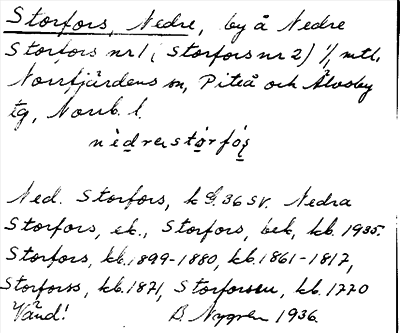 Storfors, Nedre, by å Nedre
Storfors nr 1 (Storfors nr 2) 1/1 mtl.
Norrfjärdens sn, Piteå och Älvsby
tg, Norrb. l.
nèdrerstórfós
Ned. Storfors, k 36 sv. Nedra
Storfors, ek., Storfors, bek, kb. 1935.
Storfors, kb. 1899-1880, kb. 1861-1817,
Storforss, kb. 1821, kb. 1770
Vänd! B. Nygren 1936.